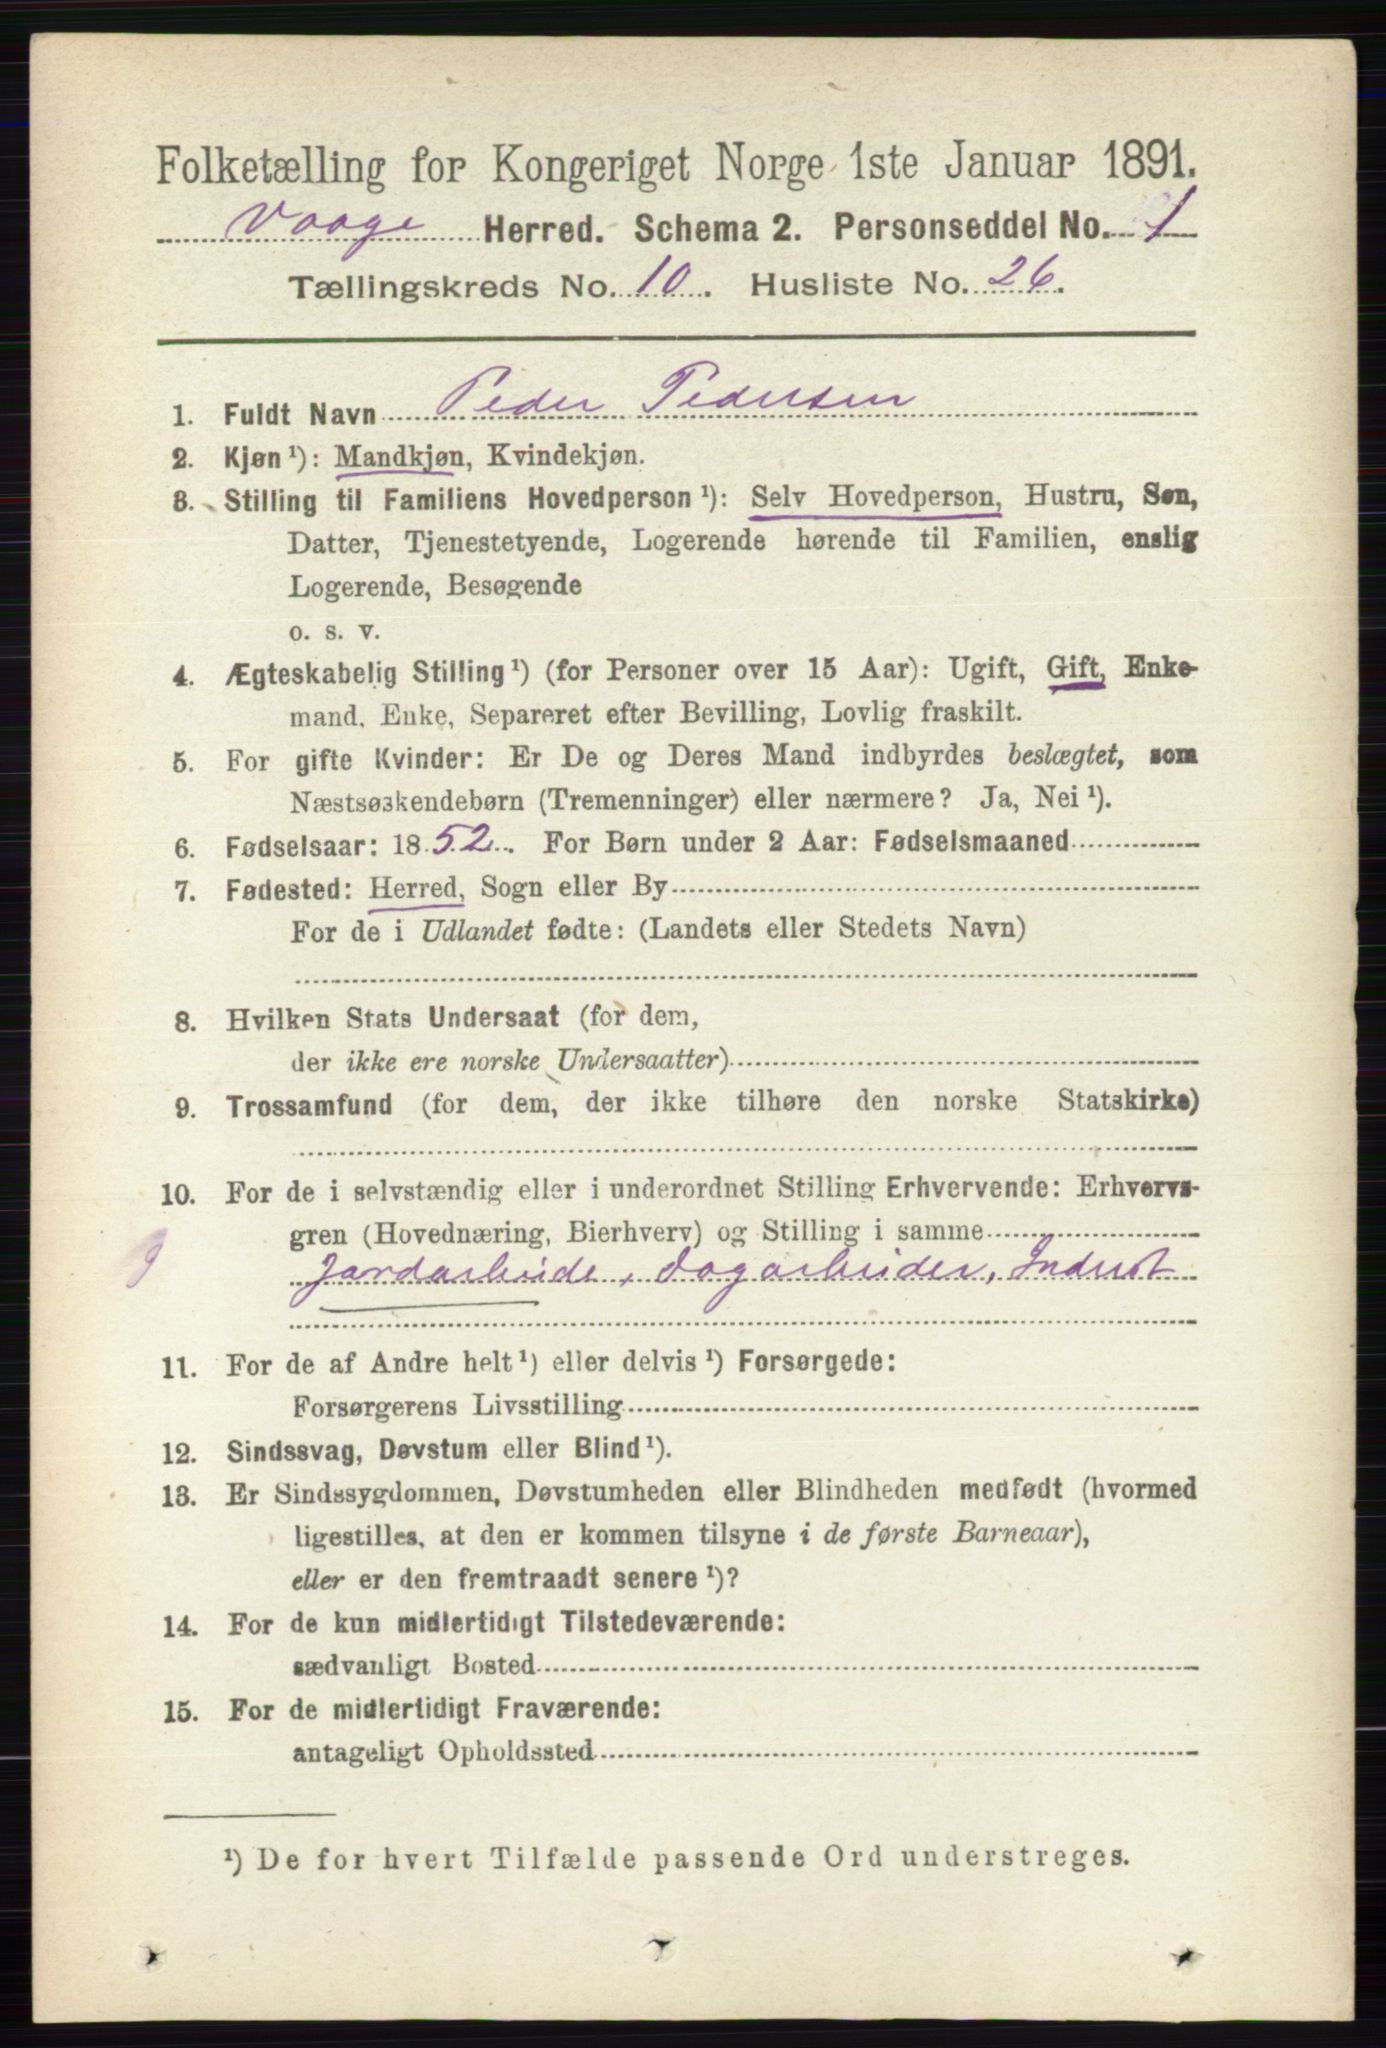 Folketælling for Kongeriget Norge 1ste Januar 1891.
Vaage Herred. Schema 2. Personseddel No. 1
Tællingskreds No. 10. Husliste No. 26.
1. Fuldt Navn Peder Pedersen
2. Kjøn ¹): Mandkjøn, Kvindekjøn.
3. Stilling til Familiens Hovedperson ¹): Selv Hovedperson, Hustru, Søn,
Datter, Tjenestetyende, Logerende hørende til Familien, enslig
Logerende, Besøgende
o. s. v.
4. Ægteskabelig Stilling ¹) (for Personer over 15 Aar): Ugift, Gift, Enke-
mand, Enke, Separeret efter Bevilling, Lovlig fraskilt.
5. For gifte Kvinder: Er De og Deres Mand indbyrdes beslægtet, som
Næstsøskendebørn (Tremenninger) eller nærmere? Ja, Nei ¹).
6. Fødselsaar: 1852. For Børn under 2 Aar: Fødselsmaaned
7. Fødested: Herred, Sogn eller By
For de i Udlandet fødte: (Landets eller Stedets Navn)
8. Hvilken Stats Undersaat (for dem,
der ikke ere norske Undersaatter)
9. Trossamfund (for dem, der ikke tilhøre den norske Statskirke)
10. For de i selvstændig eller i underordnet Stilling Erhvervende: Erhvervs-
gren (Hovednæring, Bierhverv) og Stilling i samme
Jordarbeide, Dagarbeider, Inderst
11. For de af Andre helt ¹) eller delvis ¹) Forsørgede:
Forsørgerens Livsstilling
12. Sindssvag, Døvstum eller Blind ¹).
13. Er Sindssygdommen, Døvstumheden eller Blindheden medfødt (hvormed
ligestilles, at den er kommen tilsyne i de første Barneaar),
eller er den fremtraadt senere ¹)?
14. For de kun midlertidigt Tilstedeværende:
sædvanligt Bosted
15. For de midlertidigt Fraværende:
antageligt Opholdssted
¹) De for hvert Tilfælde passende Ord understreges.